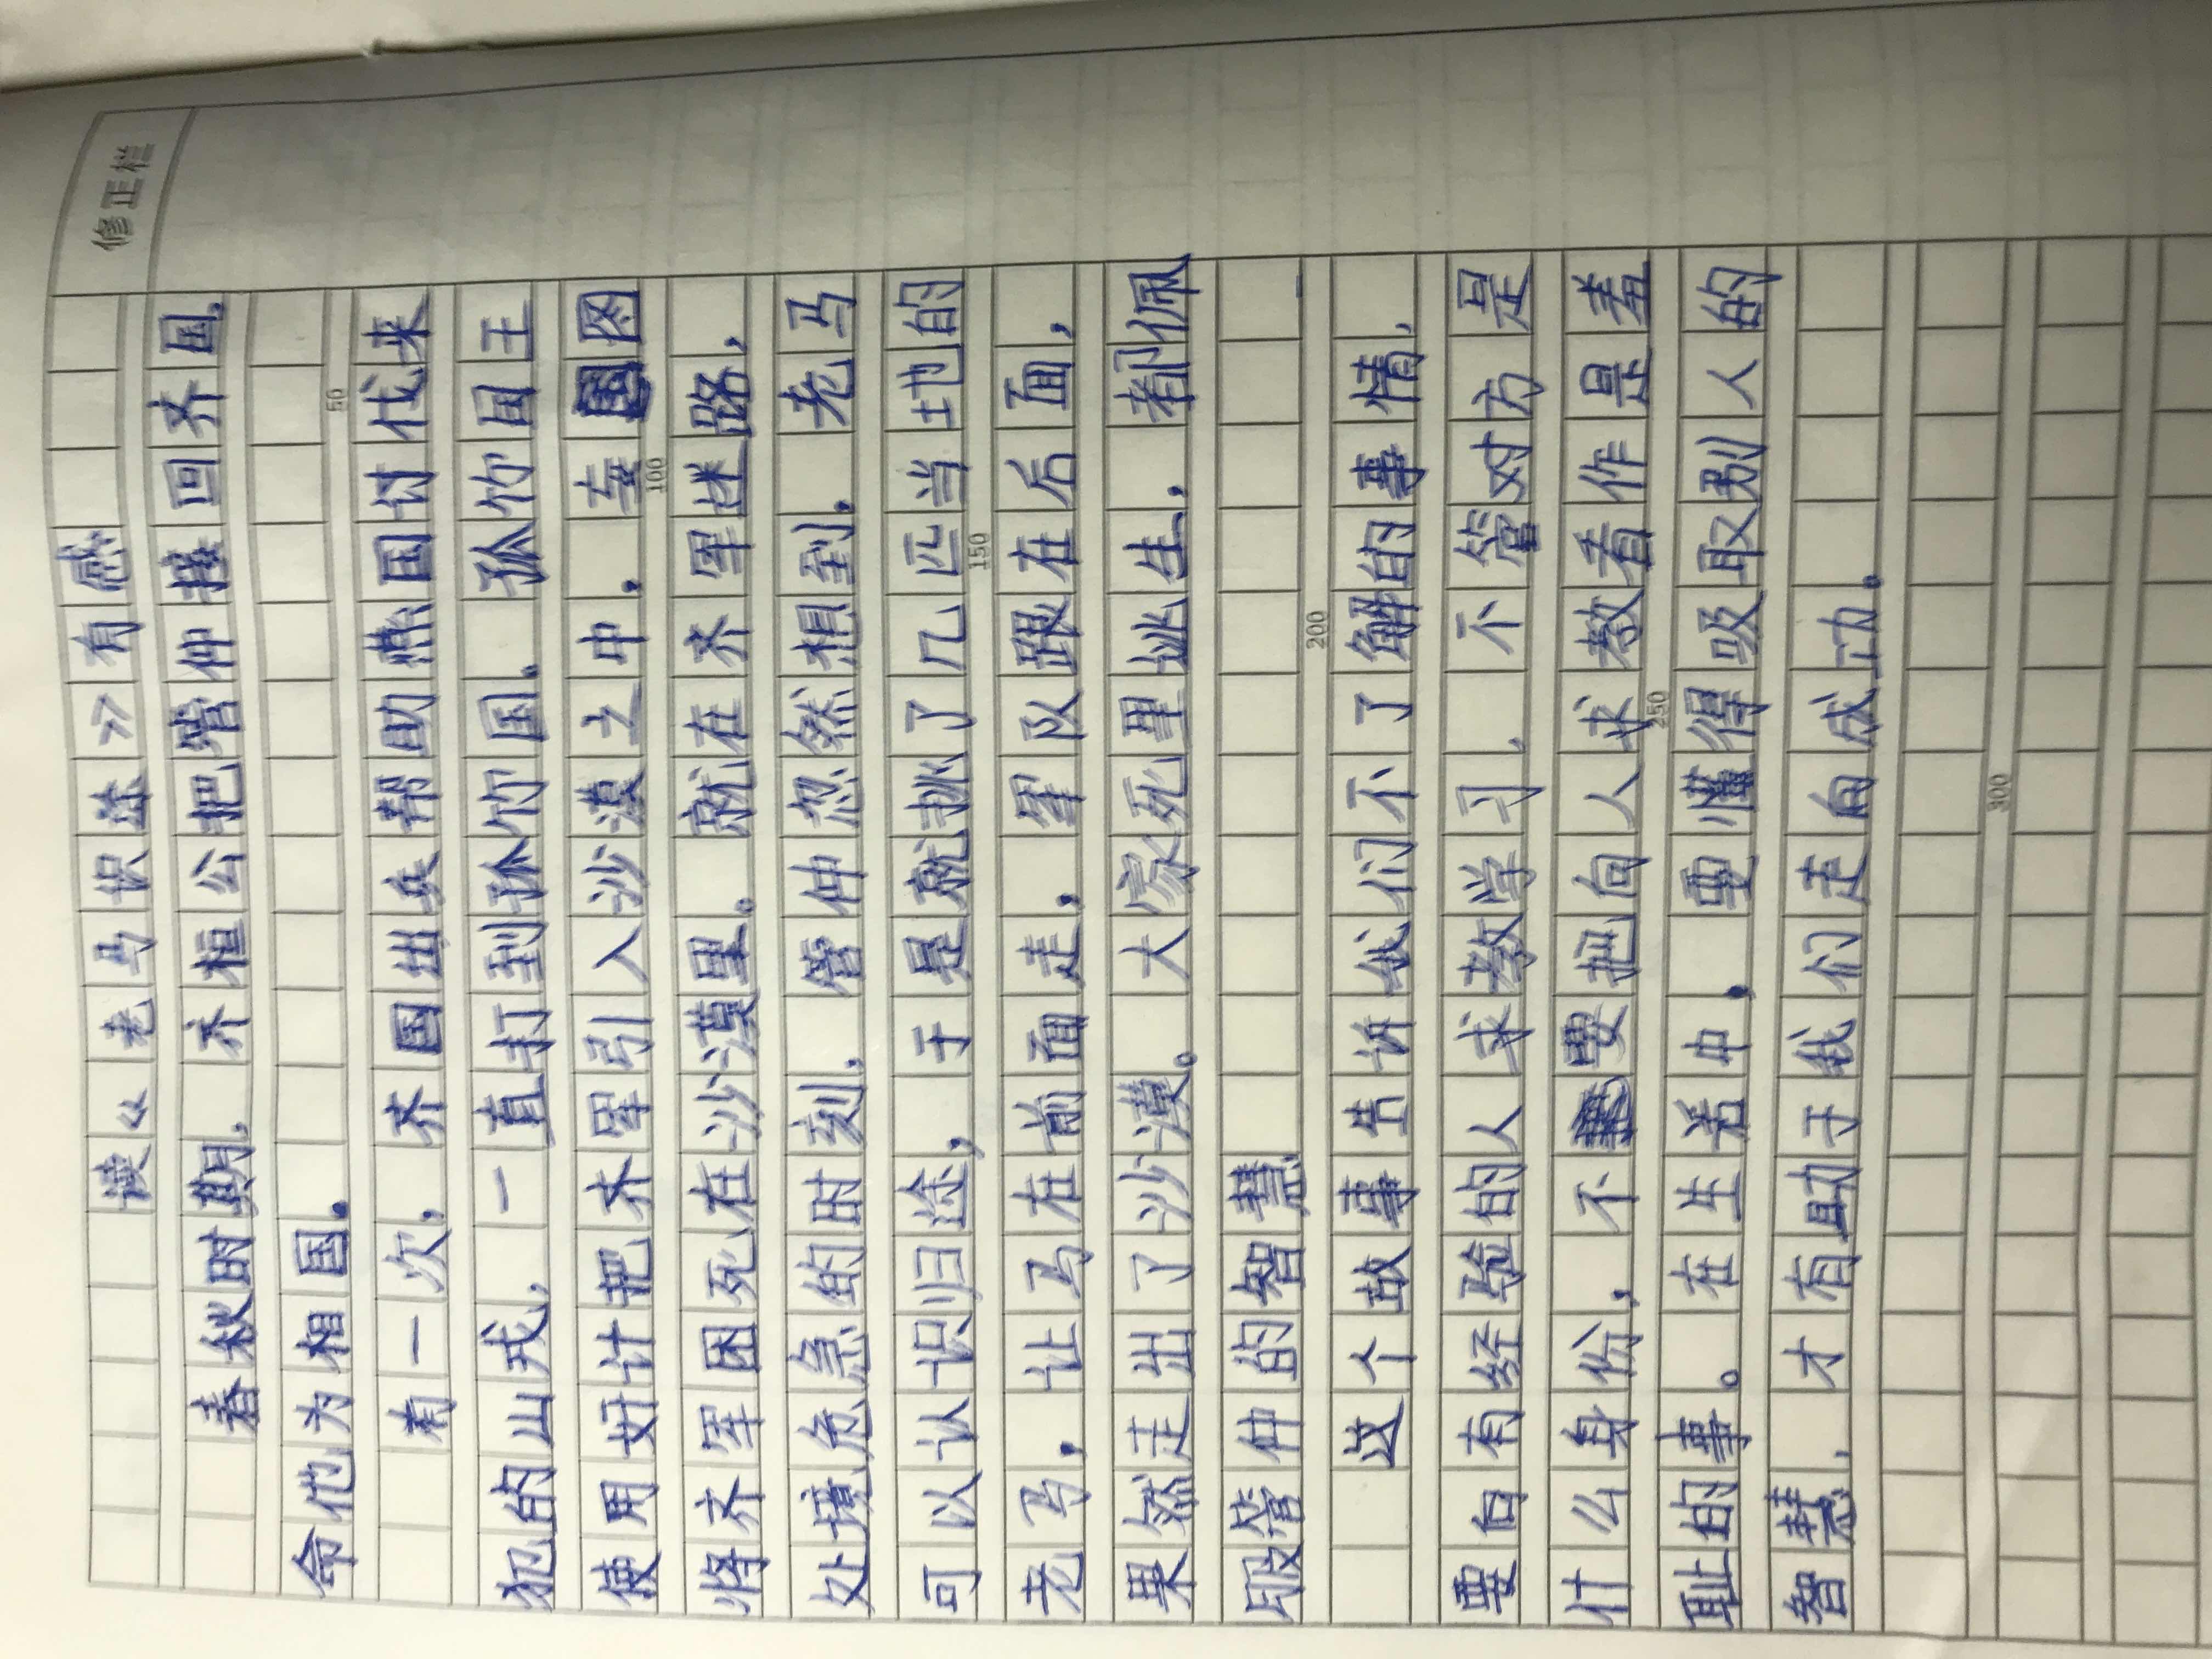 修正栏
读《老马识途》有感
春秋时期，齐桓公把管仲接回齐国，
命他为相国。
50
有一次，齐国出兵帮助燕国讨伐来
犯的山戎，一直打到孤竹国。孤竹国王
使用奸计把齐军引入沙漠之中，妄图
100
将齐军困死在沙漠里。就在齐军迷路，
处境危急的时刻，管仲忽然想到，老马
可以认识归途，于是就挑了几匹当地的
150
老马，让马在前面走，军队跟在后面，
果然走出了沙漠。大家死里逃生，都佩
服管仲的智慧。
200
这个故事告诉我们不了解的事情，
要向有经验的人求教学习，不管对方是
什么身份，不要把向人求教看作是羞
250
耻的事。在生活中，要懂得吸取别人的
智慧，才有助于我们走向成功。
300